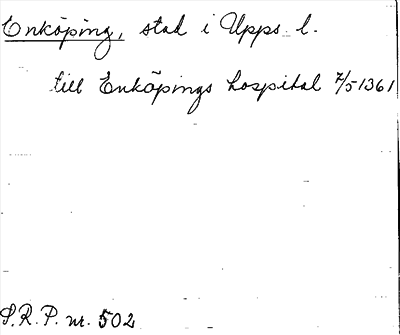 Enköping, stad i Upps. l.
till Enköpings hospital 7/5 1361
S.R.P. nr. 502